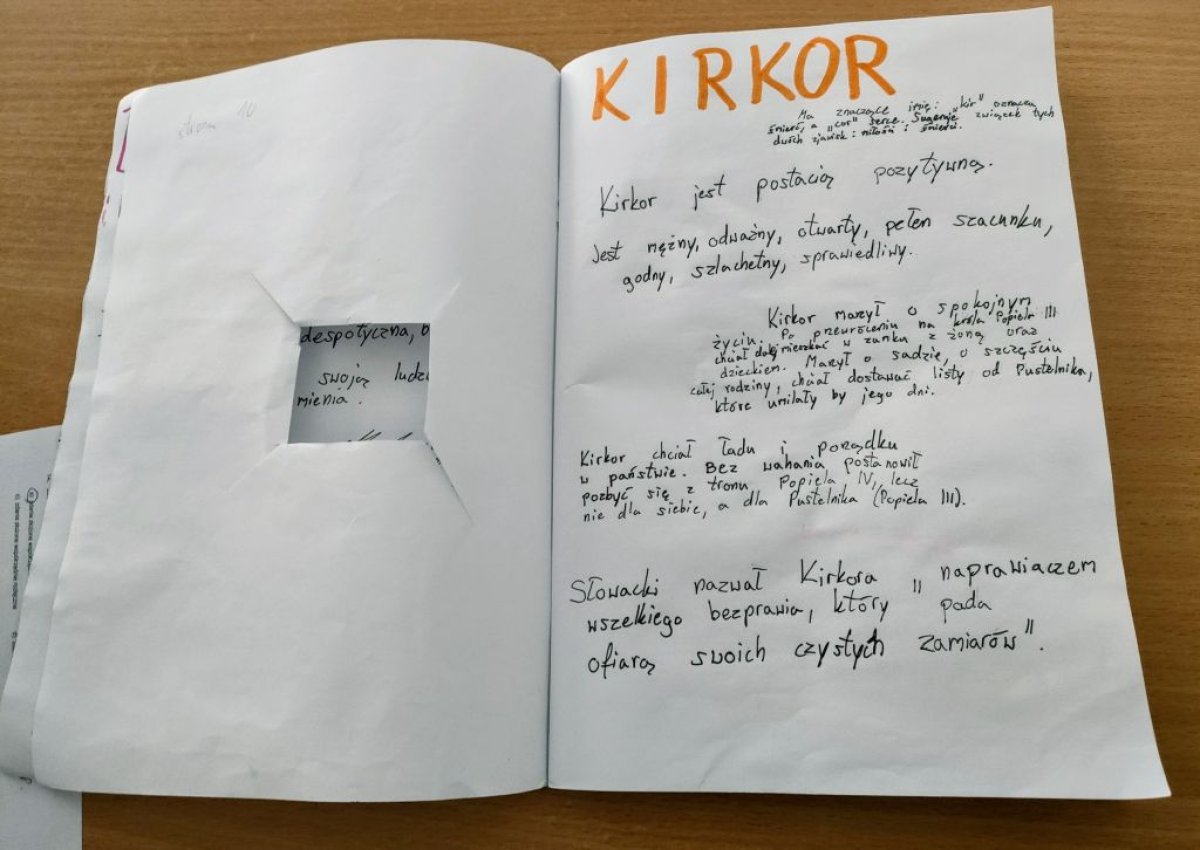 strona 10
despotyczna, b
swoją ludz
mienia.
KIRKOR
Ma znaczące imię: "kir" oznacza
śmierć, a "cor" serce. Sugeruje związek tych
dwóch zjawisk: miłość i śmierć.
Kirkor jest postacią pozytywną.
Jest mężny, odważny, otwarty, pełen szacunku,
godny, szlachetny, sprawiedliwy.
Kirkor marzył o spokojnym
życiu. Po przewróceniu na króla Popiela III
chciał dalej mieszkać w zamku z żoną oraz
dzieckiem. Marzył o sadzie, o szczęściu
całej rodziny, chciał dostawać listy od Pustelnika,
które umilały by jego dni.
Kirkor chciał ładu i porządku
w państwie. Bez wahania postanowił
pozbyć się z tronu Popiela IV, lecz
nie dla siebie, a dla Pustelnika (Popiela III).
Słowacki nazwał Kirkora "naprawiaczem
wszelkiego bezprawia, który pada
ofiarą swoich czystych zamiarów".